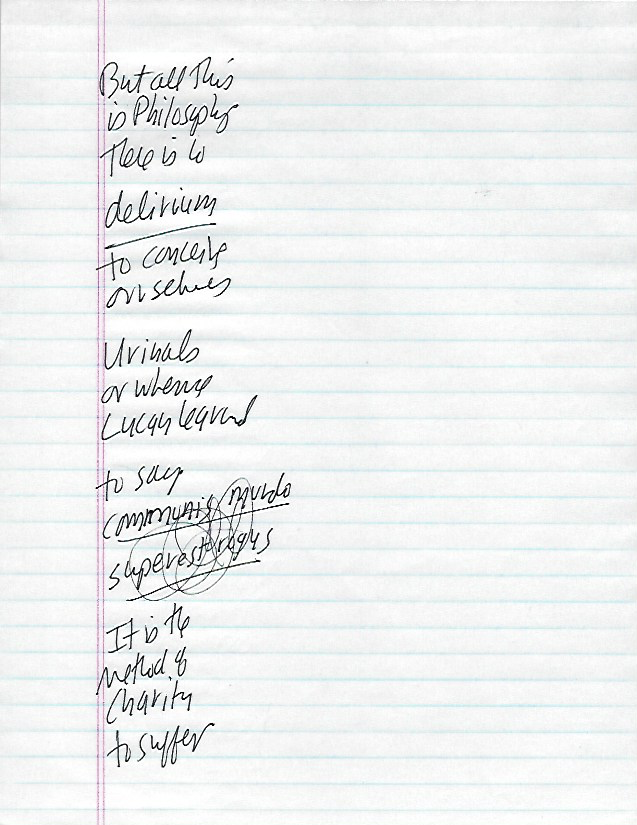 But all This
is Philosophy
There is no
delirium
to conceive
ourselves
Urinals
or whence
Lucan learned
to say
communis mundo
superest rogus
It is the
method of
Charity
to suffer